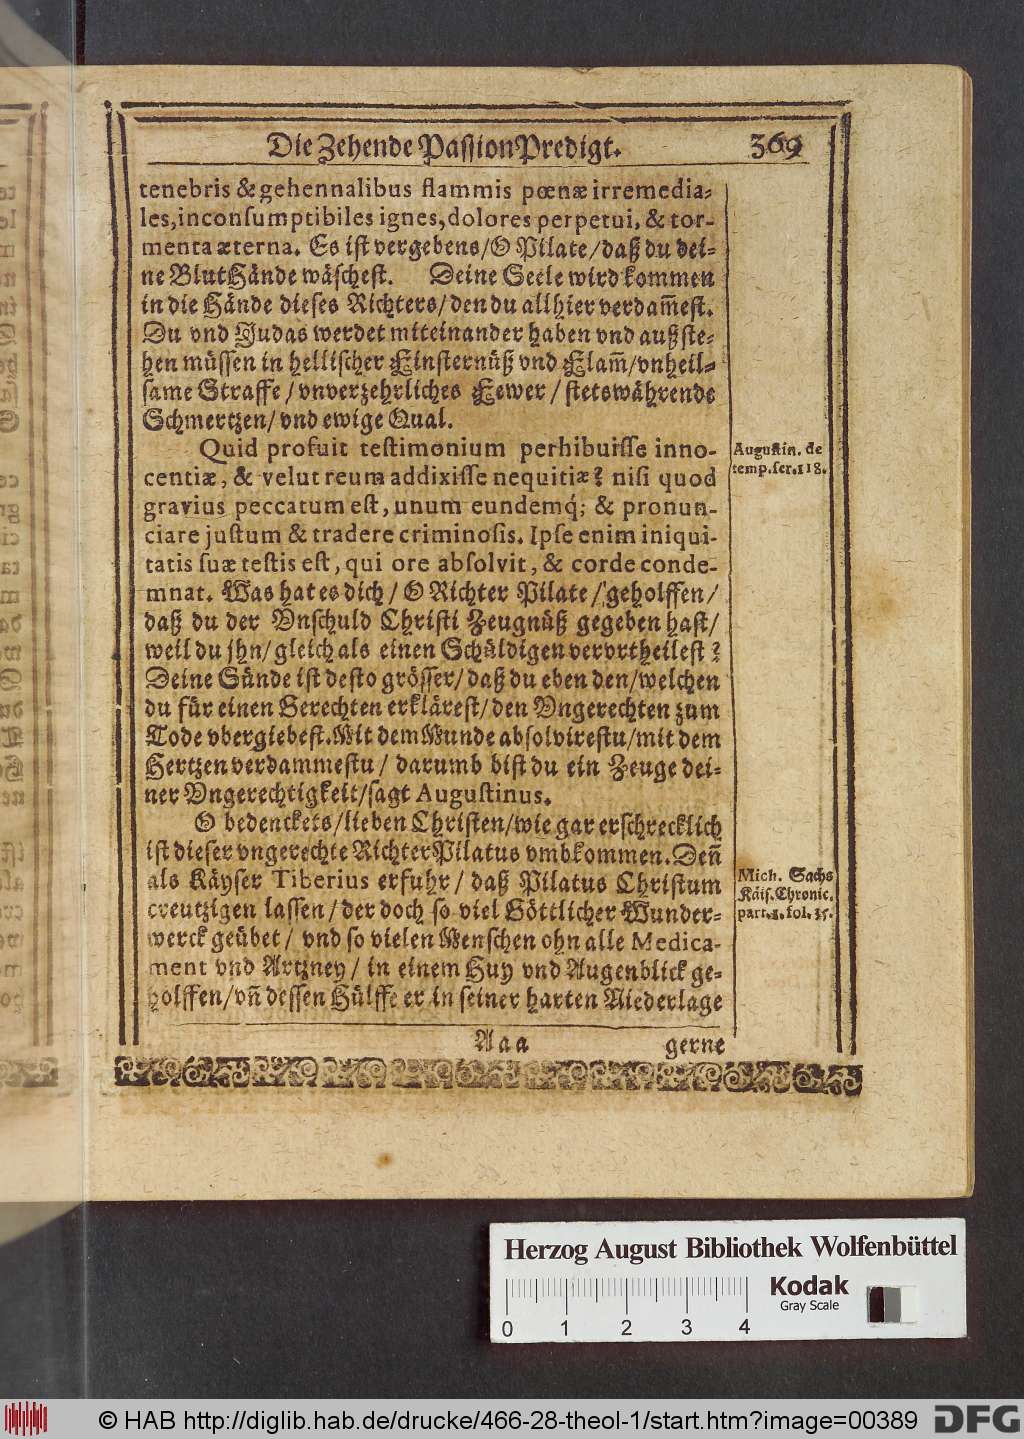 Die Zehende Passion Predigt. 369
tenebris & gehennalibus flammis pœnæ irremedia-
les, inconsumptibiles ignes, dolores perpetui, & tor-
menta æterna. Es ist vergebens/ O Pilate/ daß du dei-
ne BlutHände wäschest. Deine Seele wird kommen
in die Hände dieses Richters/ den du allhier verdam̄est.
Du vnd Judas werdet miteinander haben vnd außste-
hen müssen in hellischer Finsternüß vnd Flam̄/ vnheil-
same Straffe/ vnverzehrliches Fewer/ stetswährende
Schmertzen/ vnd ewige Qual.
Quid profuit testimonium perhibuisse inno-
centiæ, & velut reum addixisse nequitiæ? nisi quod
gravius peccatum est, unum eundemq́; & pronun-
ciare justum & tradere criminosis. Ipse enim iniqui-
tatis suæ testis est, qui ore absolvit, & corde conde-
mnat. Was hat es dich/ O Richter Pilate/ geholffen/
daß du der Vnschuld Christi Zeugnüß gegeben hast/
weil du jhn/ gleich als einen Schüldigen vervrtheilest?
Deine Sünde ist desto grösser/ daß du eben den/ welchen
du für einen Gerechten erklärest/ den Vngerechten zum
Tode vbergiebest. Mit dem Munde absolvirestu/ mit dem
Hertzen verdammestu/ darumb bist du ein Zeuge dei-
ner Vngerechtigkeit/ sagt Augustinus.
O bedenckets/ lieben Christen/ wie gar erschrecklich
ist dieser vngerechte Richter Pilatus vmbkommen. Den̄
als Käyser Tiberius erfuhr/ daß Pilatus Christum
creutzigen lassen/ der doch so viel Göttlicher Wunder-
werck geübet/ vnd so vielen Menschen ohn alle Medica-
ment vnd Artzney/ in einem Huy vnd Augenblick ge-
holffen/ vn̄ dessen Hülffe er in seiner harten Niederlage
Aaa gerne
Augustin. de
temp. ser. 118.
Mich. Sachs
Käis. Chronic.
part. 1. fol. 35.
Herzog August Bibliothek Wolfenbüttel
Kodak
Gray Scale
0 1 2 3 4
© HAB http://diglib.hab.de/drucke/466-28-theol-1/start.htm?image=00389
DFG